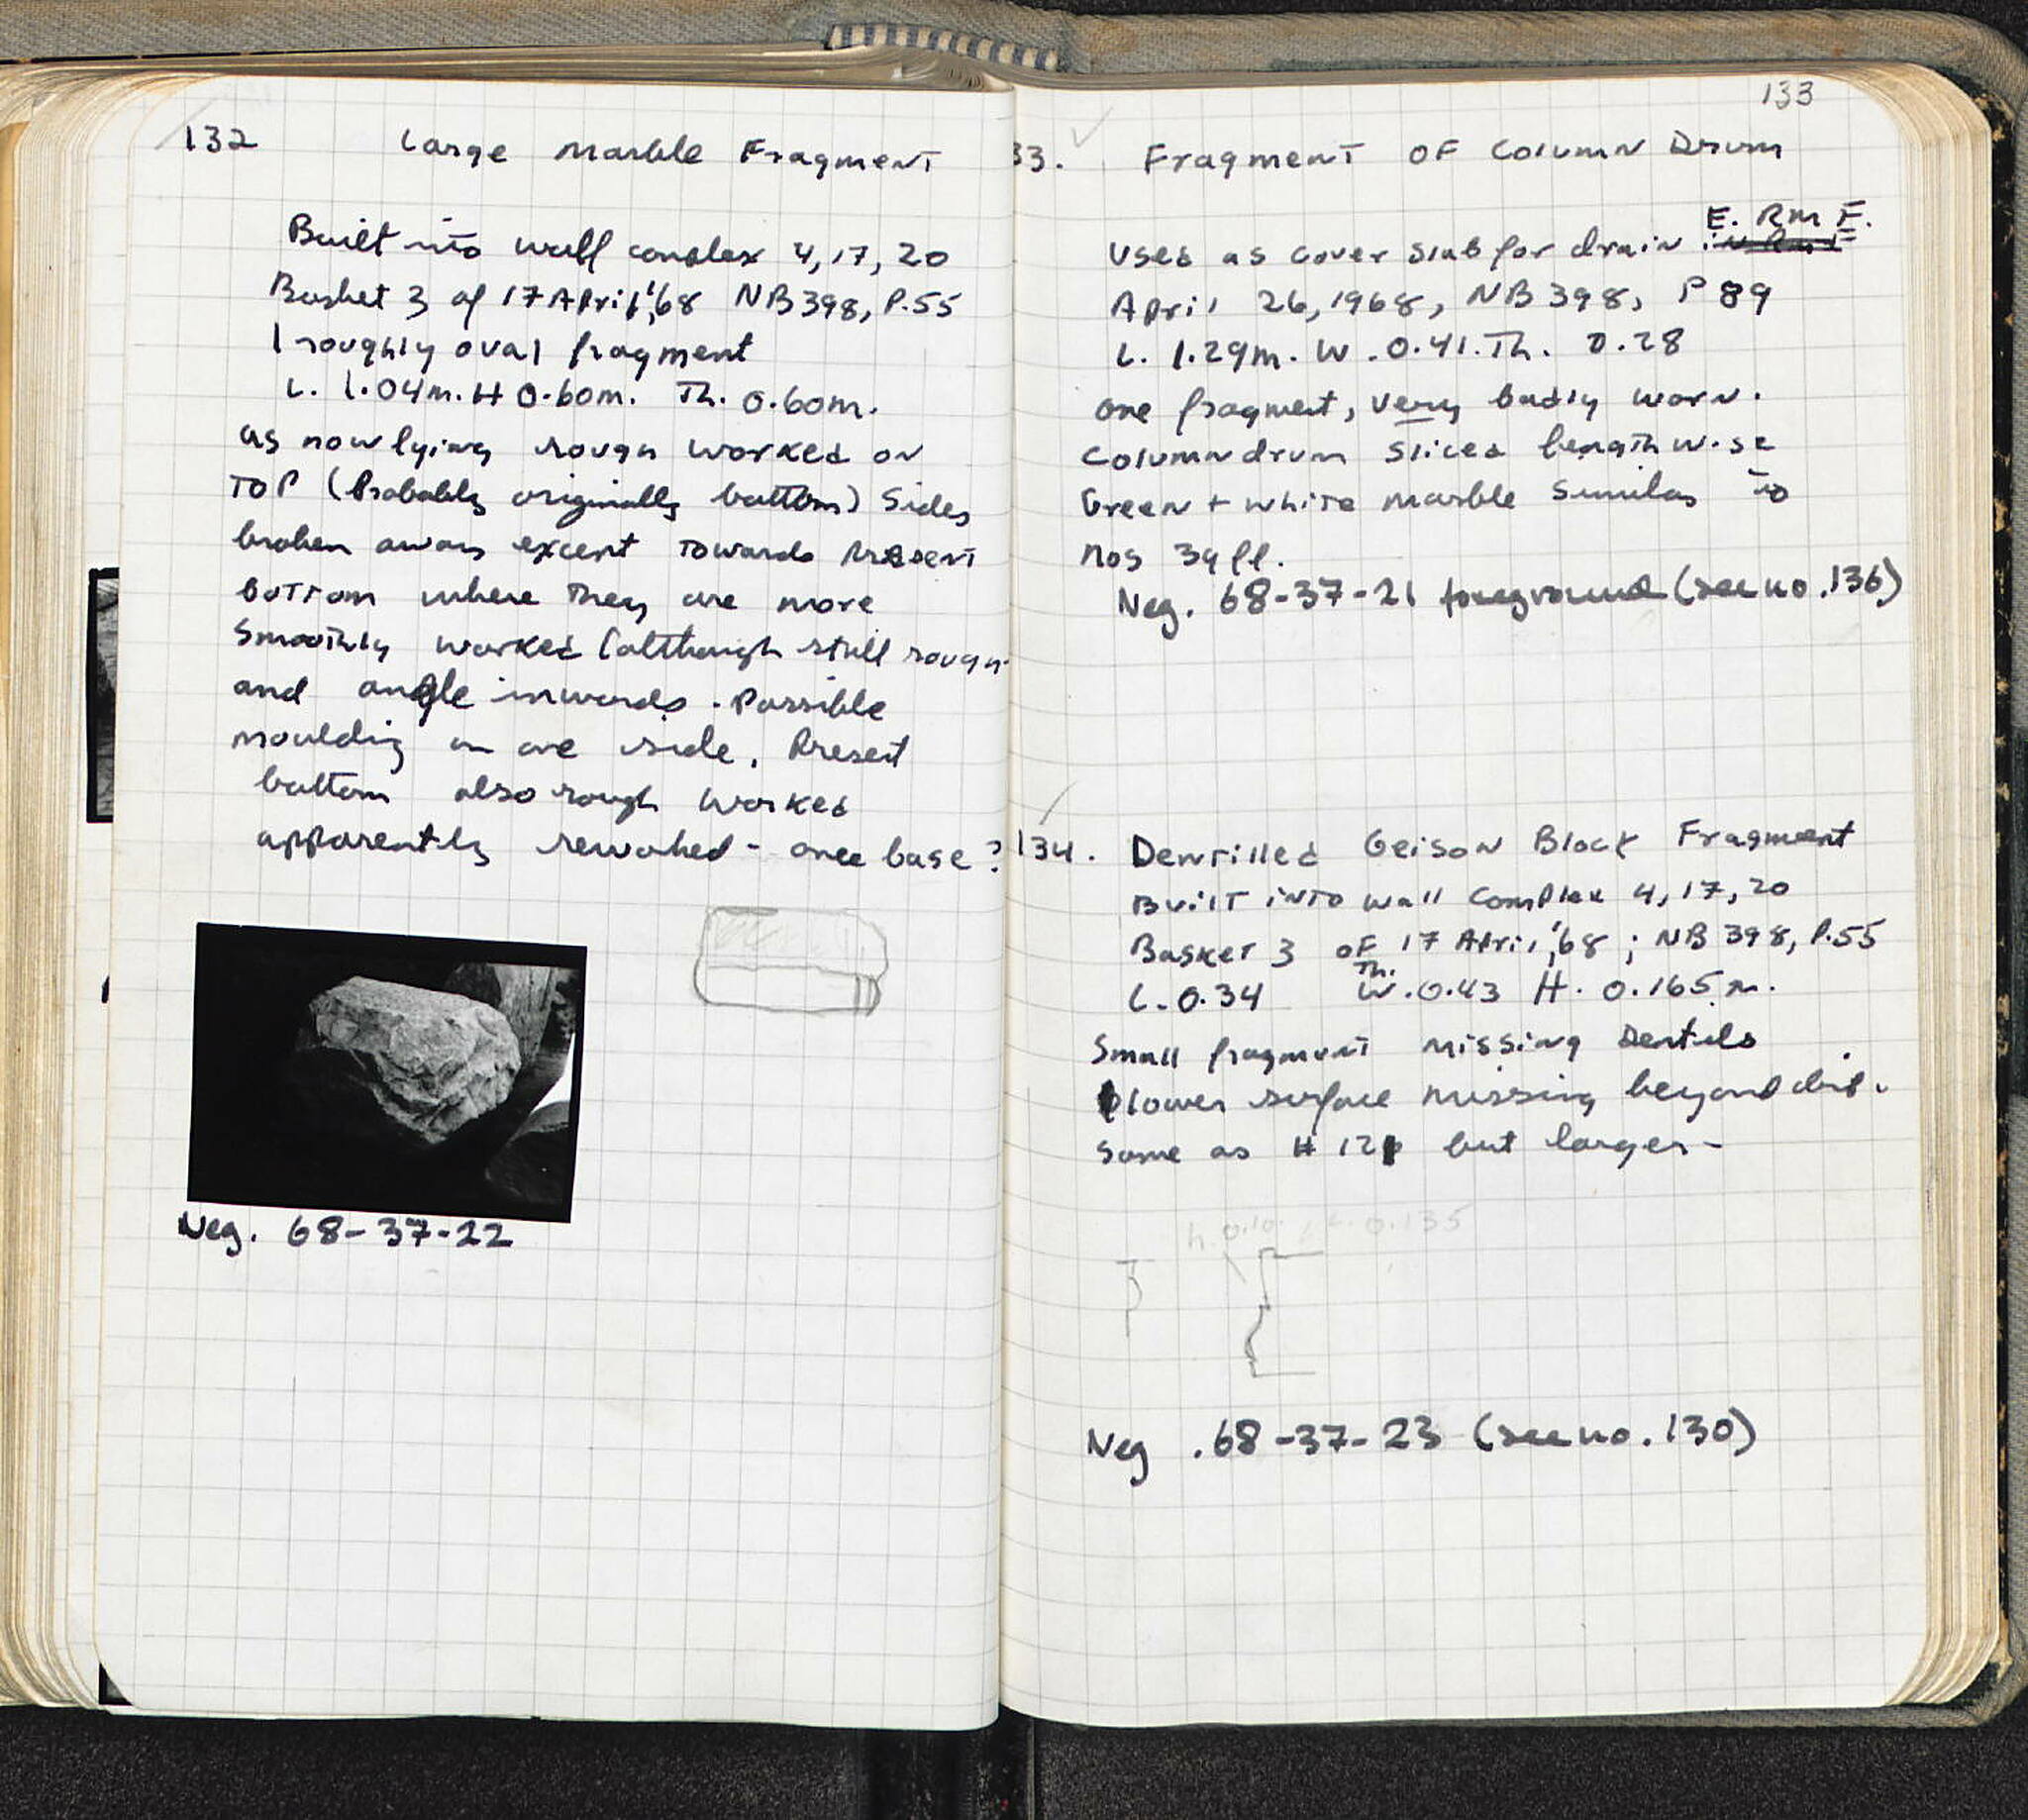 132 Large Marble Fragment
Built into wall complex 4, 17, 20
Basket 3 of 17 April, '68 NB 398, P. 55
1 roughly oval fragment
L. 1.04m. H 0.60m. Th. 0.60m.
as now lying rough worked on
TOP (Probably originally bottom) Sides
broken away except towards Present
bottom where they are more
Smoothly worked (although still rough
and angle inwards. Possible
moulding on one side. Present
bottom also rough worked
apparently reworked - once base?
Neg. 68-37-22
133
33. Fragment OF Column Drum
E. Rm F.
Used as cover slab for drain in Rm F
April 26, 1968, NB 398, P 89
L. 1.29m. W. 0.41. Th. 0.28
one fragment, very badly worn.
Column drum sliced lengthwise
Green + white marble similar to
Nos 39 ff.
Neg. 68-37-21 foreground (see no. 136)
134. Dentilled Geison Block Fragment
Built into wall complex 4, 17, 20
Basket 3 of 17 April, '68; NB 398, P. 55
Th.
L. 0.34 W. 0.43 H. 0.165 m.
Small fragment missing Dentils
lower surface missing beyond
Same as # 12 but larger -
h. 0.10. 0.135
Neg. 68-37-23 (see no. 130)